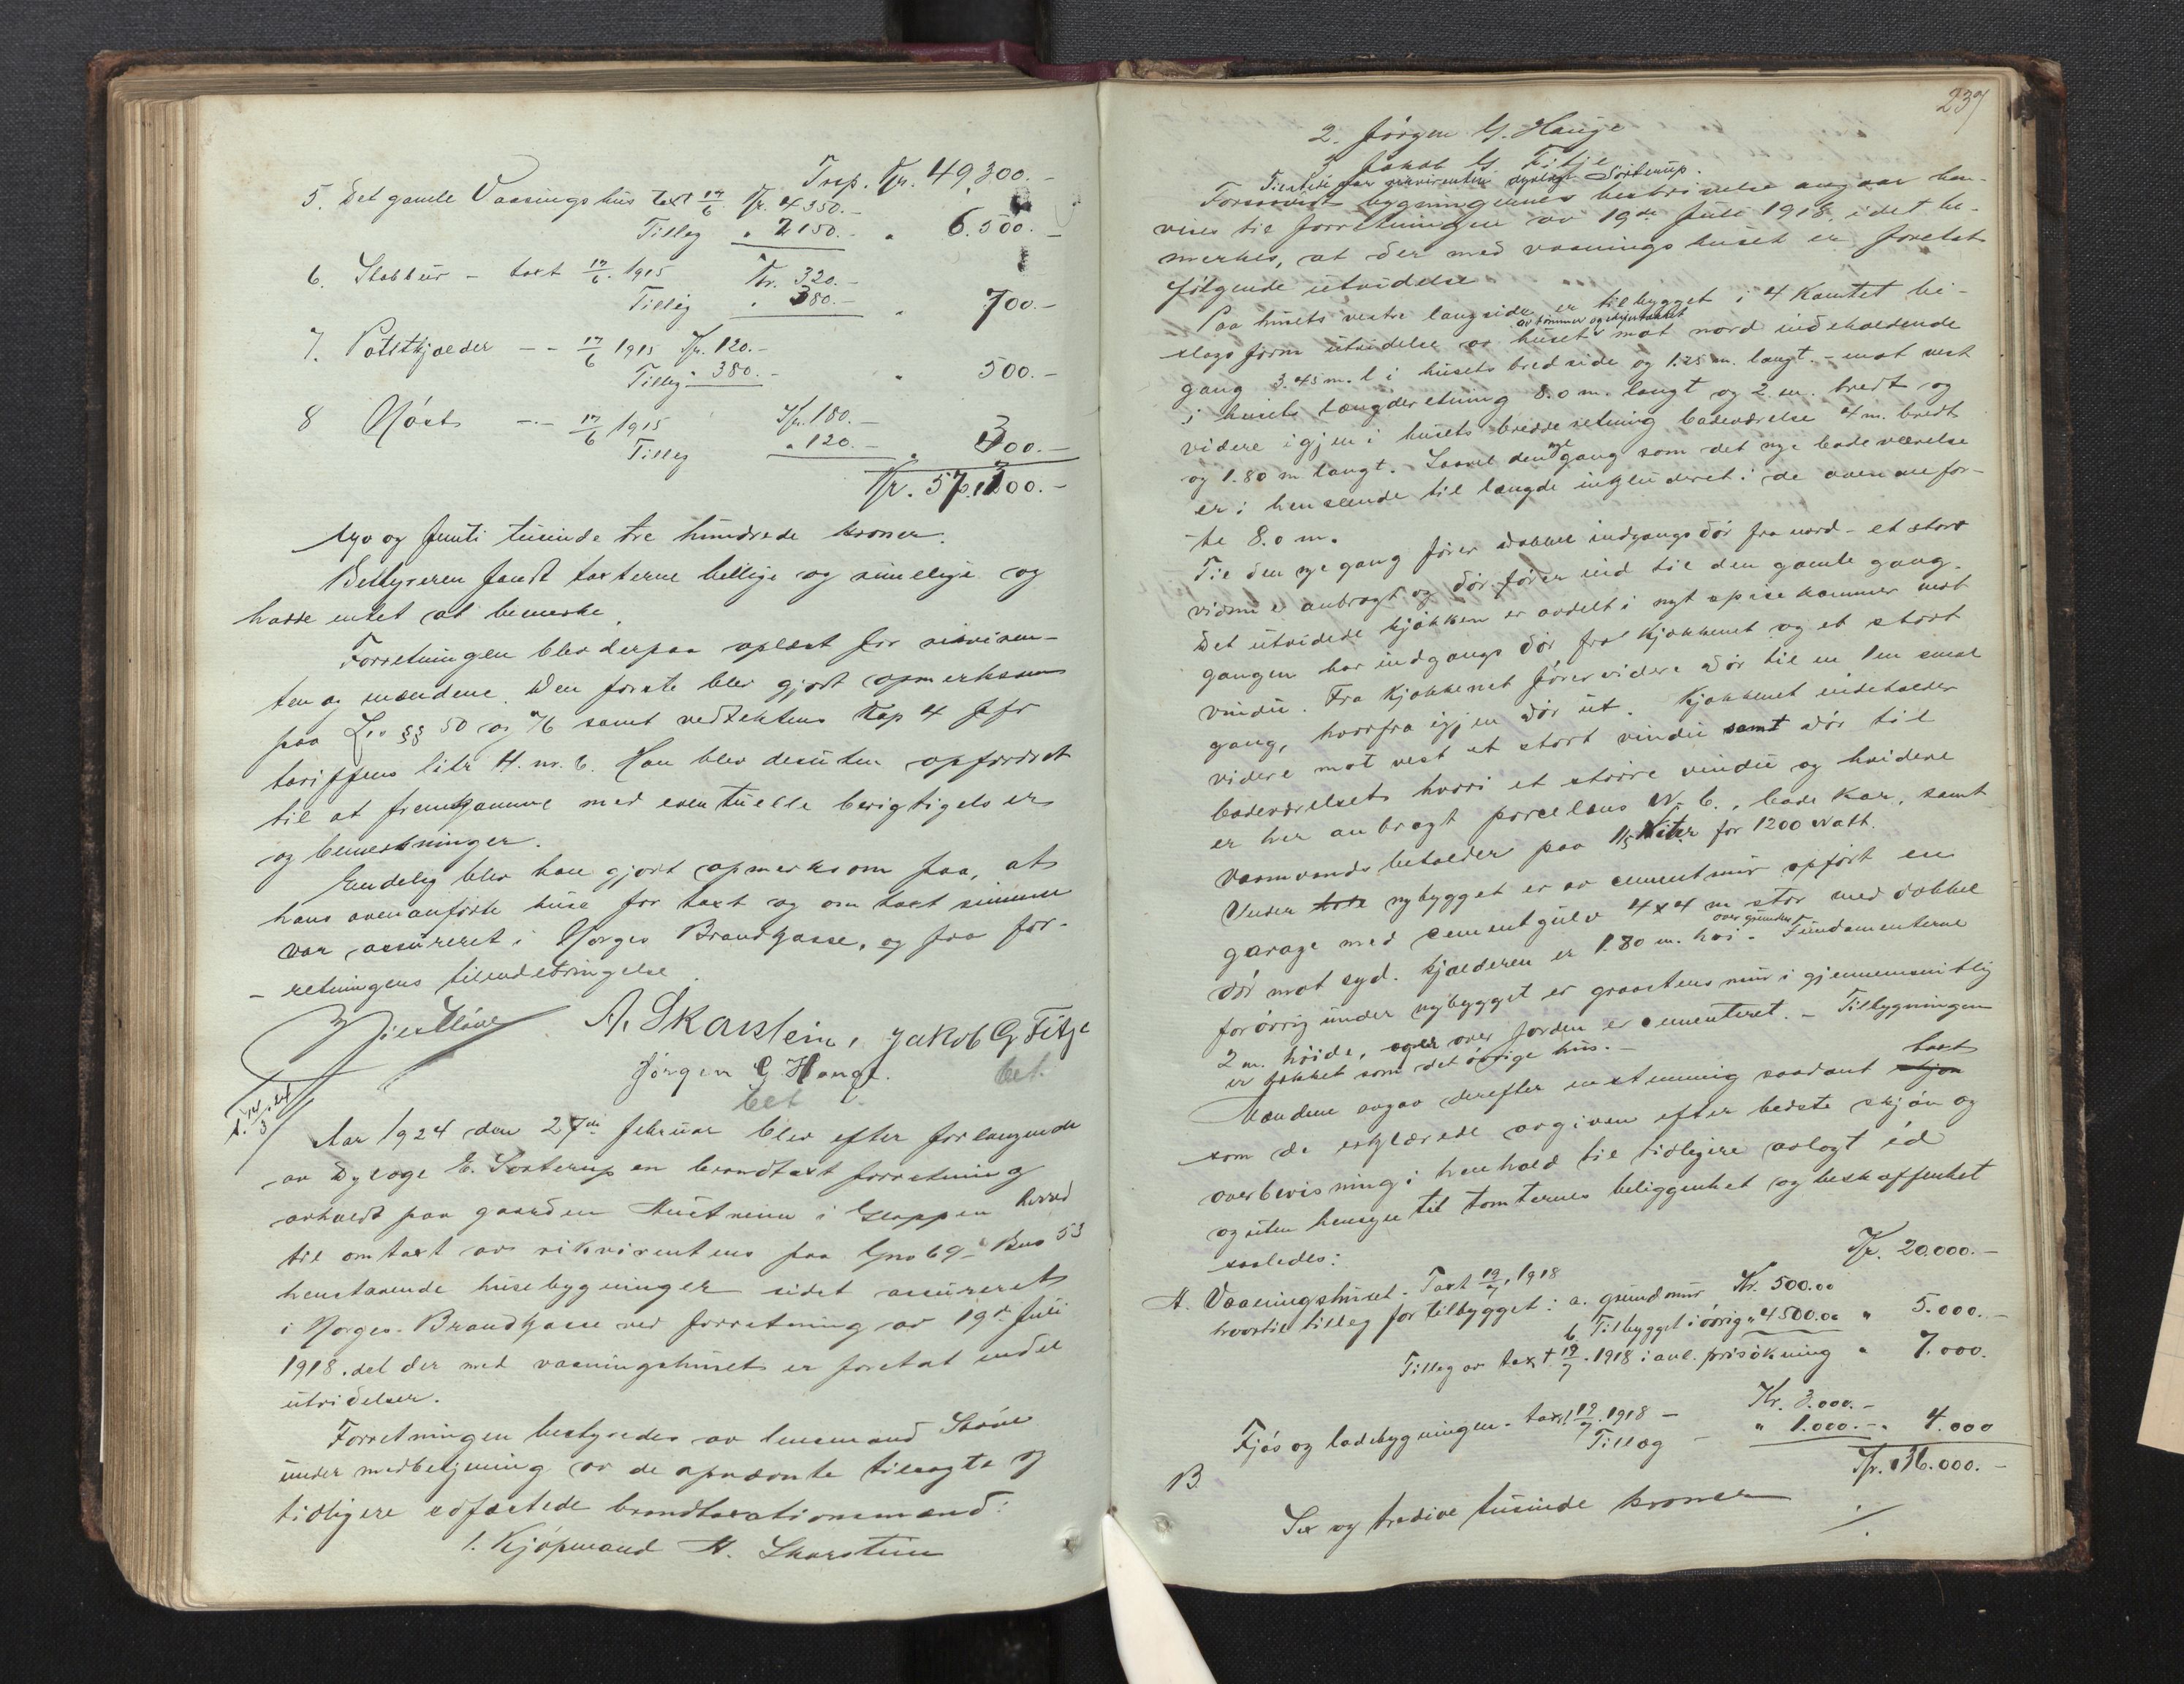 Trsp. Kr. 49,300.-
5. Det gamle Vaaningshus taxt 17/6 Kr. 4350.-
Tillæg " 2150.- " 6.500.-
6. Stabbur - taxt 17/6 1915 Kr. 320.-
Tillæg " 380.- " 700.-
7. Potetkjælder - - 17/6 1915 Kr. 120.-
Tillæg " 380.- " 500.-
8 Nøst - - 17/6 1915 Kr. 180.-
Tillæg " 120.- " 300.-
Kr. 57,300.-
syv og femti tusinde tre hundrede kroner.
Bestyreren fandt taxterne billige og rimelige og
hadde intet at bemerke.
Forretningen blev derpaa oplæst for rekviren-
ten og mændene. Den første blev gjort opmerksom
paa Lov §§ 50 og 76 samt vedtektens Kap 4 jfr
tariffens litr H. nr. 6. Han blev desuten opfordret
til at fremkomme med eventuelle berigtigelser
og bemerkninger.
Endelig blev han gjort opmerksom paa, at
hans ovenanførte huse for taxt og om taxt summen
var assureret i Norges Brandkasse, og fra for-
- retningens tilendebringelse.
A. Skarstein, Jakob G Fitje
Jørgen G Hauge. bet.
bet
14/3 24
Aar 1924 den 27de februar blev efter forlangende
av Dyrlæge E. Sorterup en brandtaxt forretning
avholdt paa gaarden Hustveim i Gloppen herred
til omtaxt av rikvirentens paa Gno 69 - Bno 53
henstaaende husebygninger sidst assureret
i Norges Brandkasse ved forretning av 19de Juli
1918. idet der med vaaningshuset er foretat endel
utvidelser.
Forretningen bestyredes av lensmand Støve
under medbetjening av de opnævnte tilsagte og
tidligere edfæstede brandtaxationsmænd:
1. Kjøpmand A. Skarstein
237
2. Jørgen G. Hauge
3 Jakob G Fitje
Tilstede var rekvirenten dyrlæge Sorterup.
Forsaavidt bygningernes beskrivelse angaar hen-
vises til forretningen av 19de Juli 1918. idet be-
merkes, at der med vaaningshuset er foretat
følgende utvidelse
Paa husets vestre langside er tilbygget i 4 Kantet be-
av tømmer og skifertækket
slags form utvidelse av huset mot nord indeholdende
gang 3.45 m. l i husets bredside og 1.25 m. langt. - mot vest
i husets længderetning 8.0 m. langt og 2. m. bredt og
videre igjen i husets bredderetning badeværelse 4 m. bredt
og 1.80 m langt. Saavel den nye gang som det nye badeværelse
er i henseende til længde inkluderet i de ovenanfør-
-te 8.0 m.
Til den nye gang fører dobbel indgangsdør fra nord - et stort
vindu er anbragt og dør fører ind til den gamle gang.
Det utvidede kjøkken er avdelt i nyt spisekammer mot
gangen har indgangs dør fra kjøkkenet og et stort
vindu. Fra kjøkkenet fører videre dør til en 1 m smal
gang, hvorfra igjen dør ut. Kjøkkenet indeholder
videre mot vest et stort vindu samt dør til
badeværelset hvori et større vindu og hvidere
er her anbragt porcelæns W.C., bade kar, samt
varmvandsbeholder paa 115 liter for 1200 Watt.
Under nybygget er av cementmur opført en
garage med cementgulv 4 x 4 m stor med dobbel
dør mot syd. Kjælderen er 1.80 m. høi. over grunden Fundamenterne
forøvrig under nybygget er graastensmur i gjennemsnitlig
2 m. høide, over jorden er cementeret. - Tilbygningen
er tækket som det øvrige hus. -
Mændene avgav derefter enstemmig saadant taxt
som de erklærede avgiven efter bedste skjøn og
overbevisning i henhold til tidligere avlagt ed
og uten hensyn til tomternes beliggenhet og beskaffenhet
saaledes:
A. Vaaningshuset - Taxt 19/7 1918 Kr. 20.000.-
hvortil tillæg for tilbygget: a. grundmur Kr. 500.00
b. Tilbygget i øvrig " 4500.00 " 5.000.-
Tillæg av taxt 19/7 1918 i anl. prisøkning " 7.000.
B Fjøs og ladebygningen - taxt 19/7 1918 - Kr. 3.000.-
Tillæg - " 1.000.- " 4.000
Kr. 36.000.-
Sex og tredive tusinde kroner